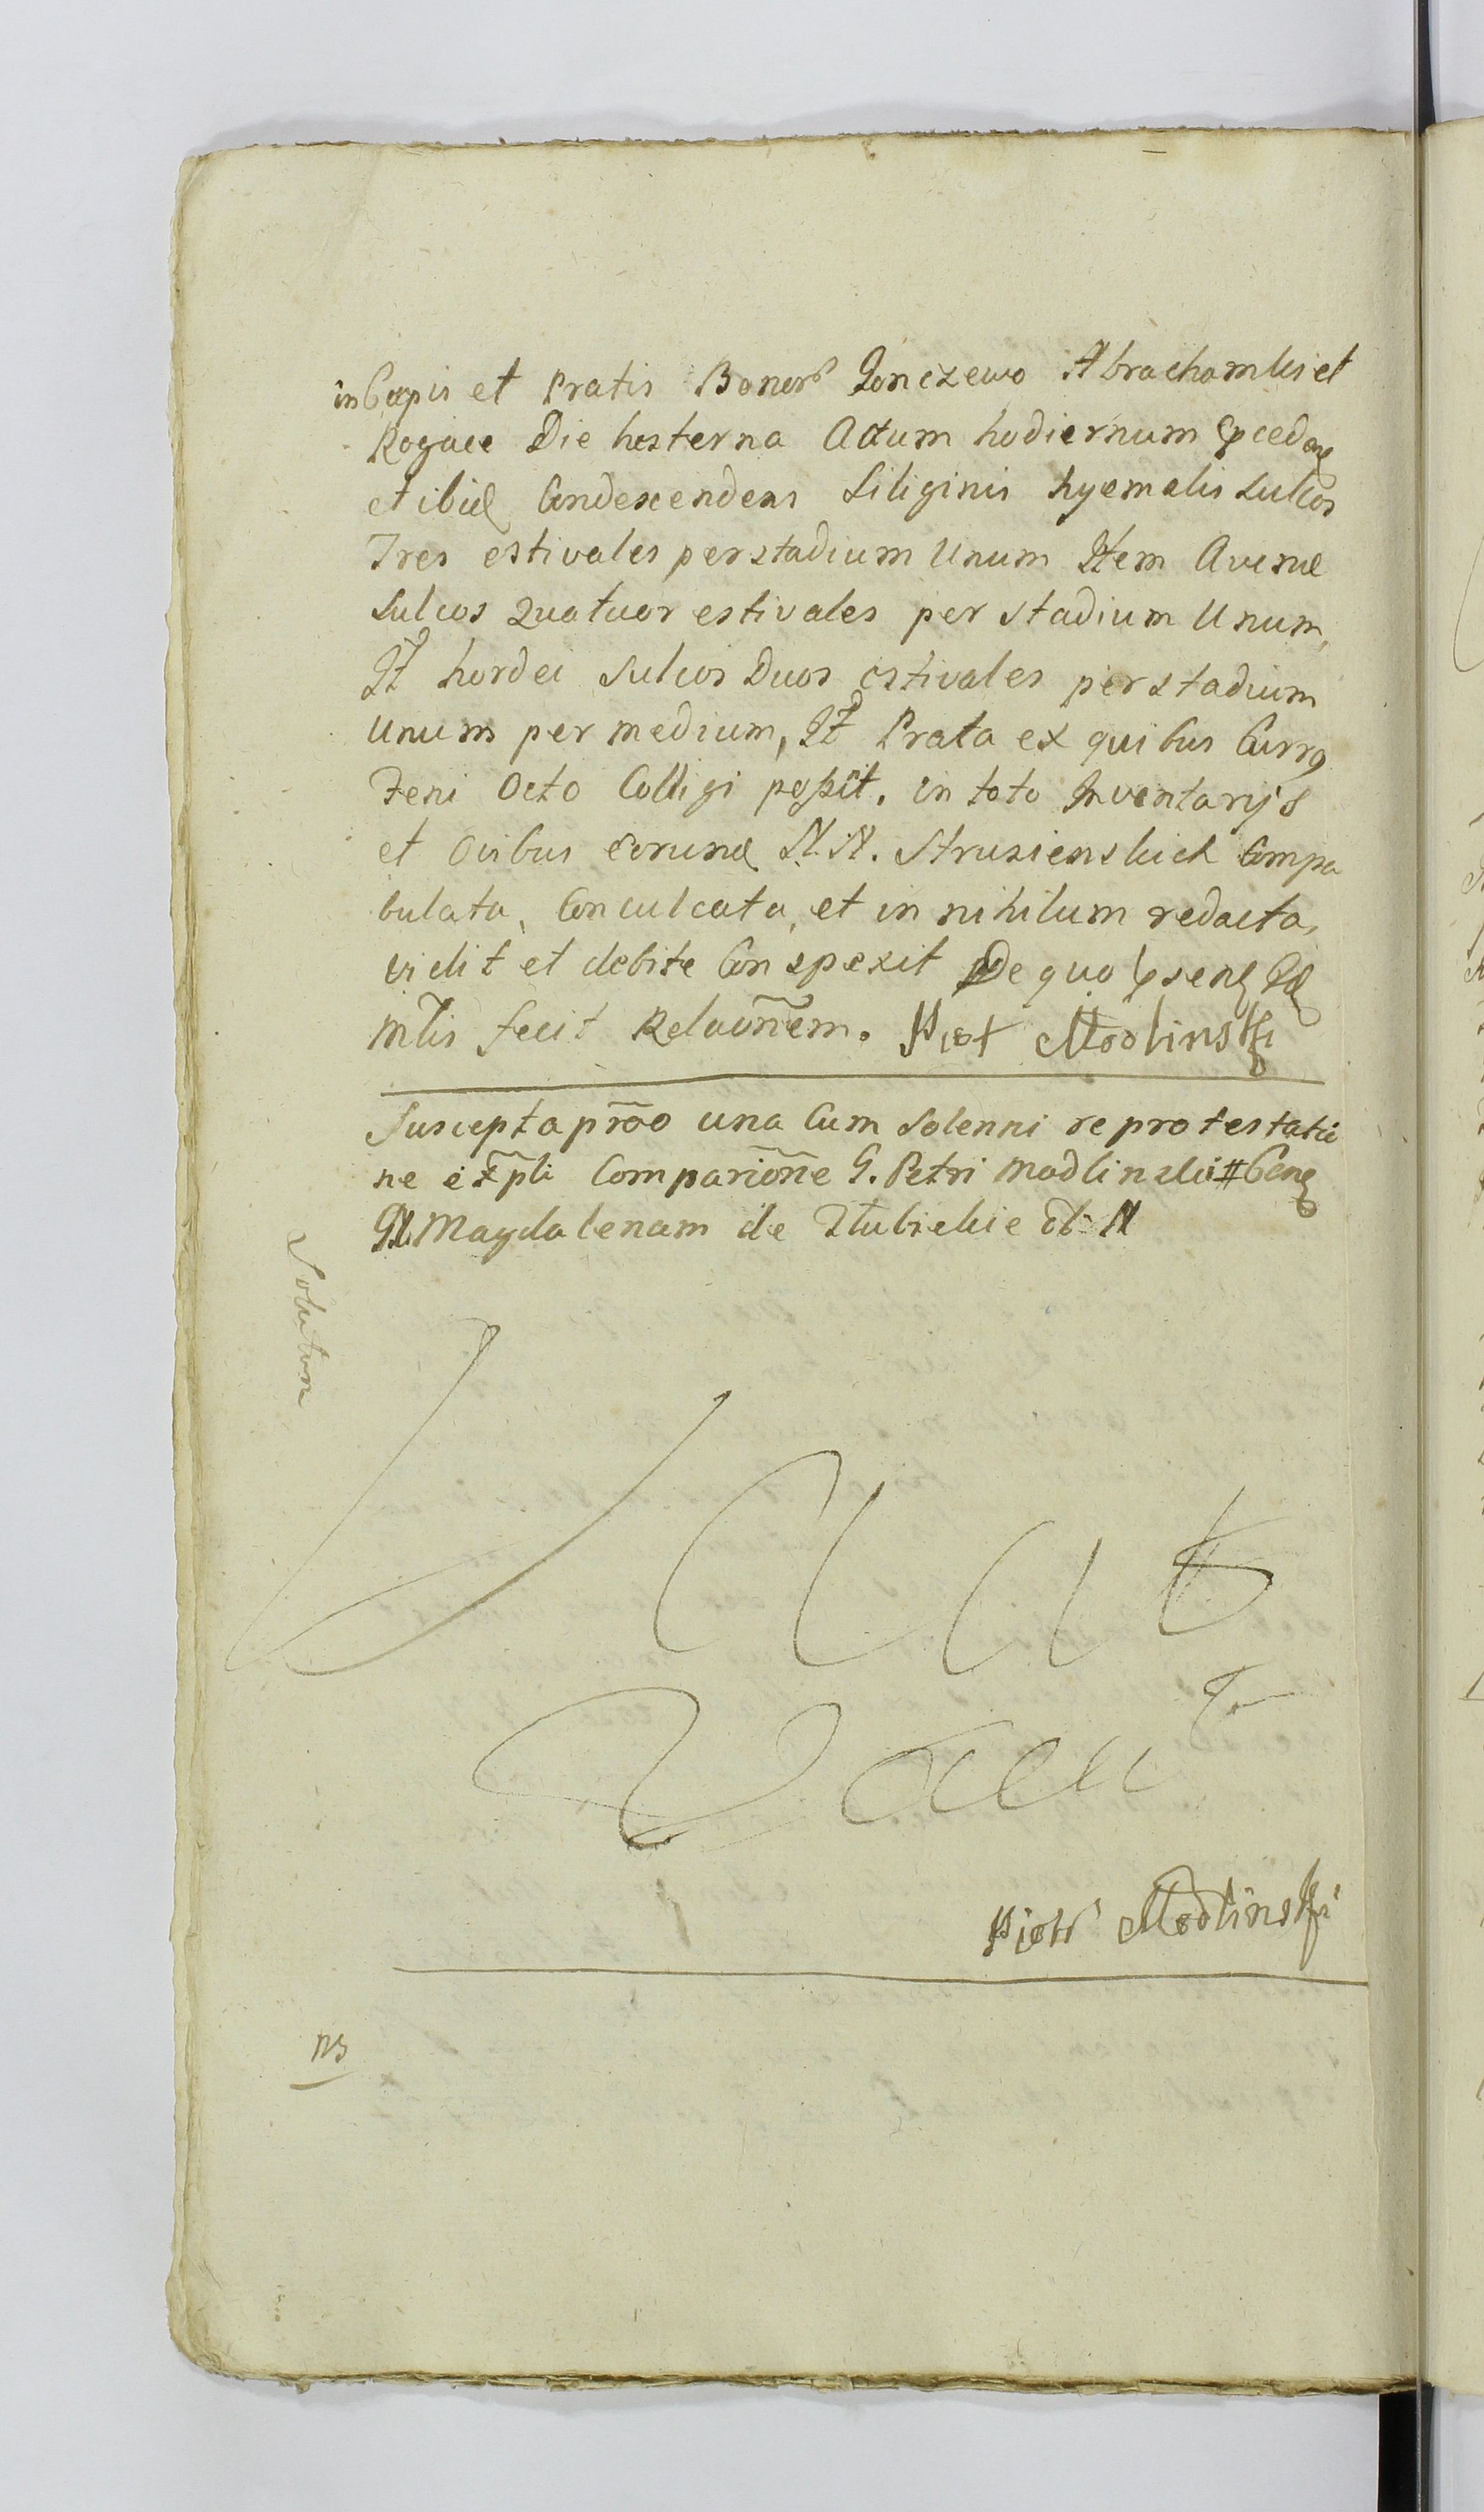 in Campis et Pratis Bonor Gonczewo Abrachamki et
Rogace Die hesterna Actum hodiernum Pcedoñ
et ibid Condescendens Siliginis hyemalis Sulcos
Tres estivales per stadium Unum Item Avenæ
Sulcos Quatuor estivales per Stadium Unum,
It hordei Sulcos Duos estivales per stadium
Unum per medium, It Prata ex quibus Curry
Feni Octo Colligi possit, in toto Inventarijs
et Ovibus eorund N. N. Strusienskich Compa
bulata, Conculcata, et in nihilum redacta,
vidit et debite Conspexit De quo psenz Id
Mlis fecit Relaõnem. Piot Modlinski
Suscepta prãõ una Cum Solenni reprotestatio
ne eẽpli Compariõne G. Petri Modlinski # Cenz
G. Magdalenam de Hubickie et N
Solutum
Vacat
Piotr Modlinski
ns